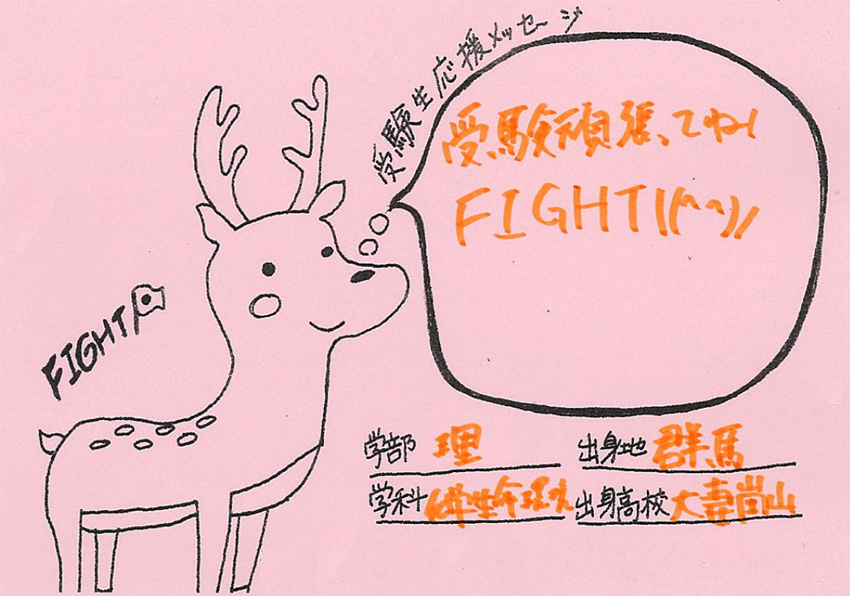 受験生応援メッセージ
受験頑張ってね!
FIGHT!(^^)/
FIGHT
学部 理
出身地 群馬
学科 化学生命環境
出身高校 大妻嵐山